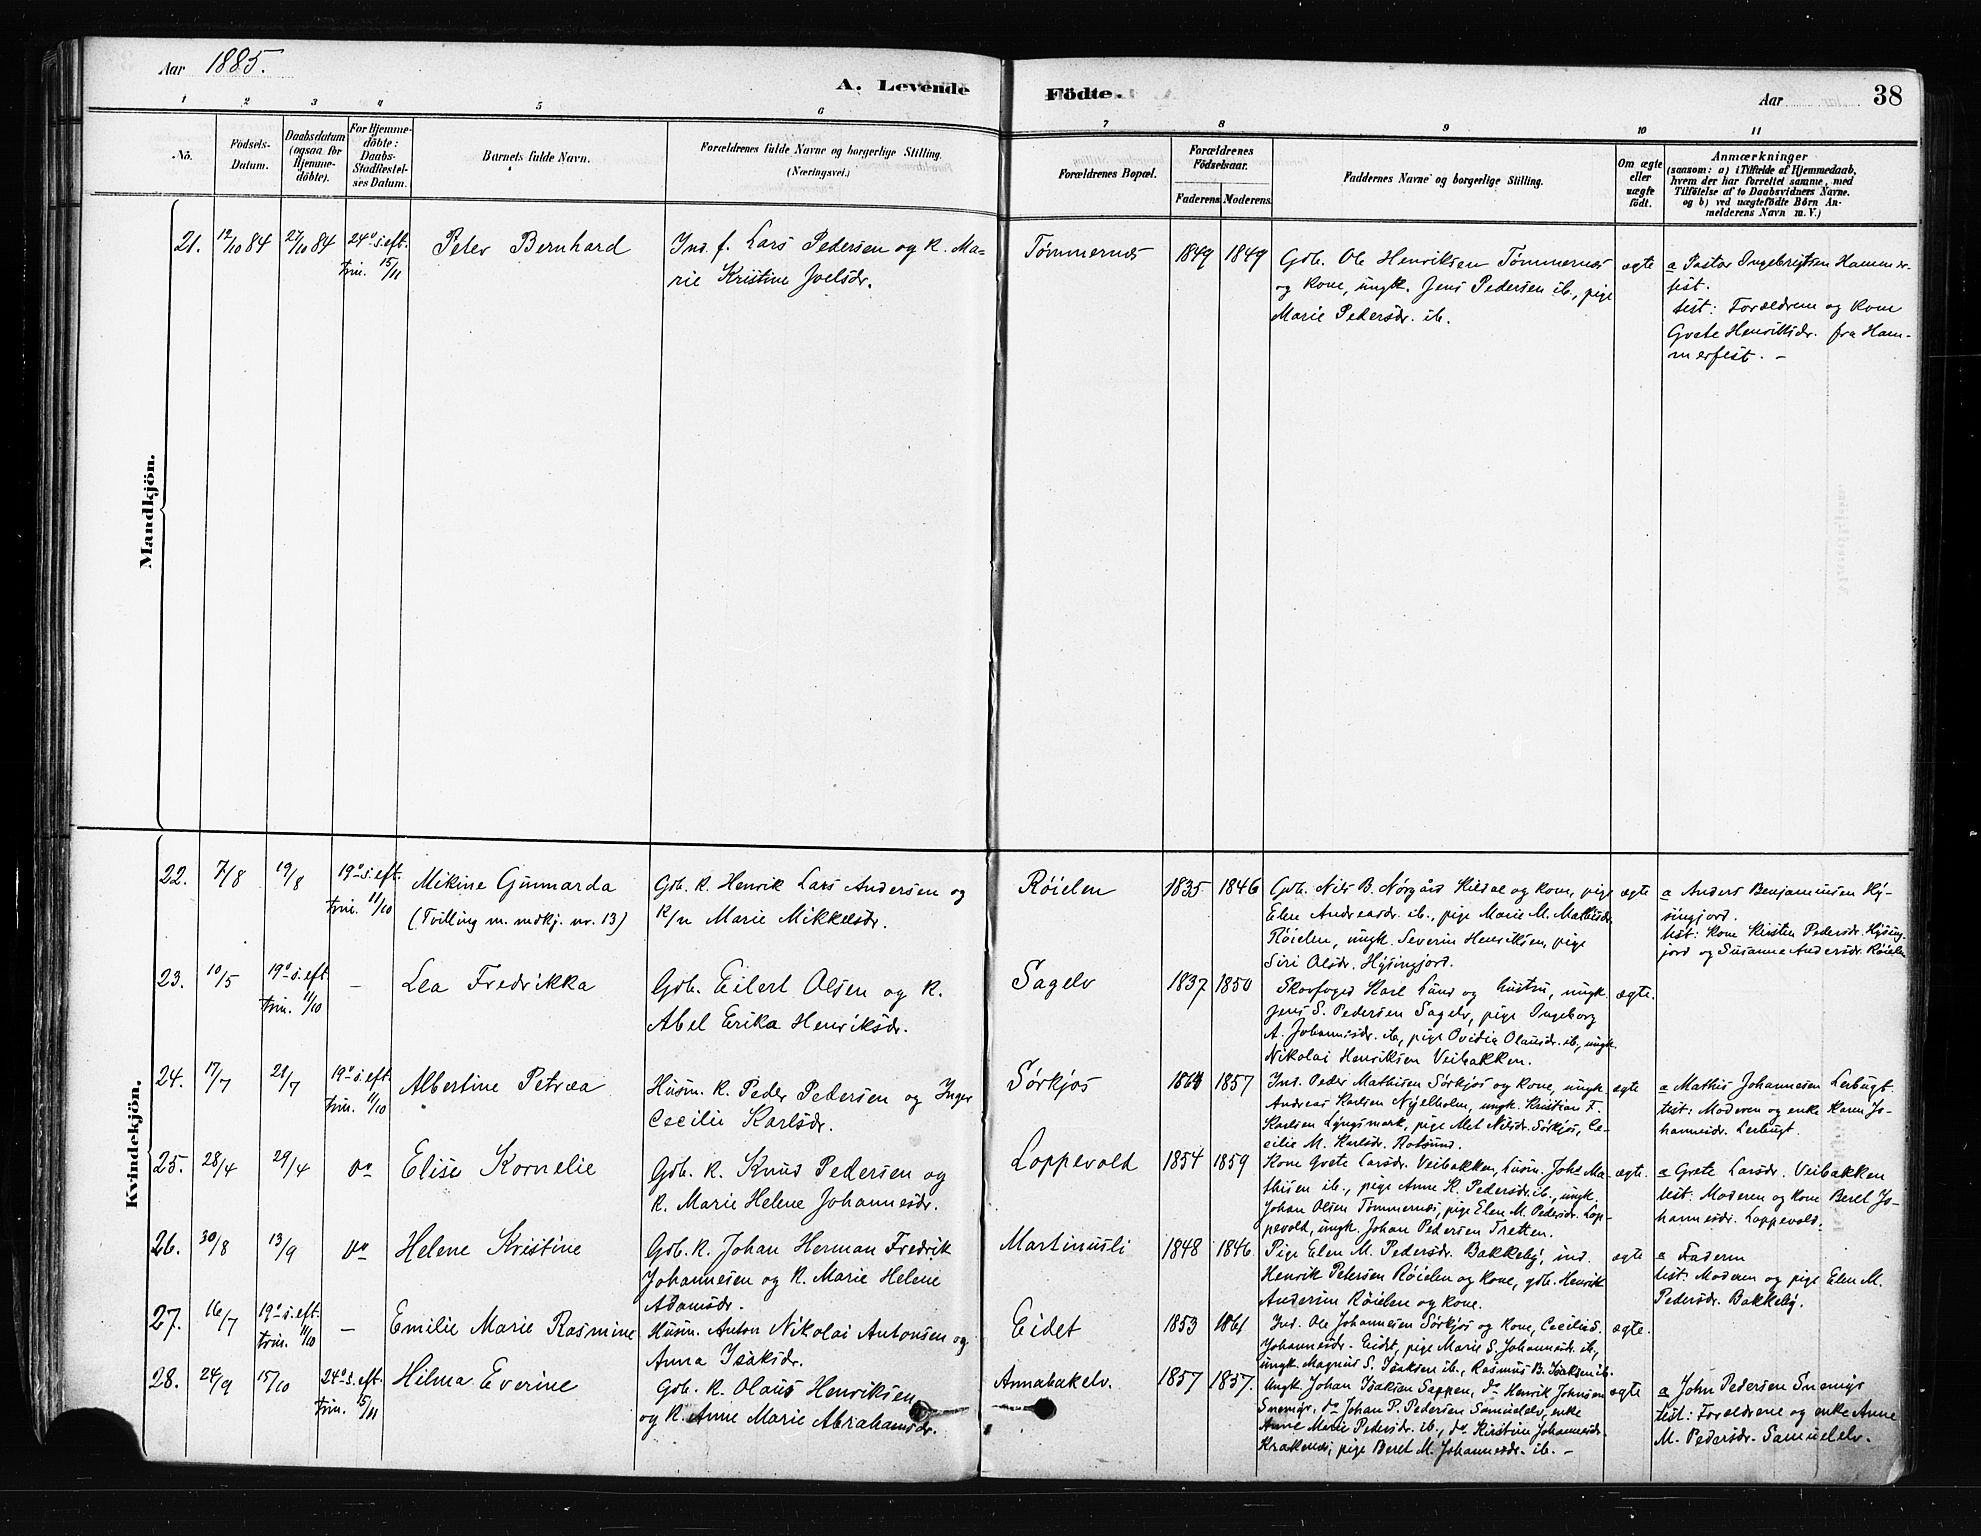 Aar 1885.
A. Levende Födte.
Aar
38
1 2 3 4 5 6 7 8 9 10 11
No.
Födsels-Datum.
Daabsdatum (ogsaa for Hjemme-döbte).
For Hjemme-döbte: Daabs-Stadfestel-ses Datum.
Barnets fulde Navn.
Forældrenes fulde Navne og borgerlige Stilling. (Næringsvei.)
Forældrenes Bopæl.
Forældrenes Födselsaar.
Faderens Moderens.
Faddernes Navne og borgerlige Stilling.
Om ægte eller uægte födt.
Anmærkninger
(saasom: a) i Tilfælde af Hjemmedaab,
hvem der har forrettet samme, med
Tilföielse af to Daabsvidners Navne.
og b) ved uægtefödte Börn An-
melderens Navn m. V.)
Mandkjön.
21. 12/10 84 27/10 84 24° s. eft. trin. 15/11
Peter Bernhard
Ind. f. Lars Pedersen og K. Ma-
rie Kristine Joelsdr.
Tømmernes
1849 1849
Gdb. Ole Henriksen Tømmernes
og kone, ungk. Jens Pedersen ib., pige
Marie Pedersdr. ib.
ægte
a Pastor Ingebrigtsen Hammer-
fest.
test: Forældrene og kone
Grete Henriksdr. fra Ham-
merfest. –
Kvindekjön.
22. 7/8 19/8 19° s. eft. trin. 11/10
Mikine Gunnarda
(Tvilling m. mdkj. nr. 13)
Gdb. K. Henrik Lars Andersen og
K/n Marie Mikkelsdr.
Röielen
1835 1846
Gdb. Nils B. Nørgård Kildal og kone, pige
Elen Andreasdr. ib., pige Marie M. Mathisdr.
Röielen, ungk. Severin Henriksen, pige
Siri Olsdr. Hysingjord.
ægte
a Anders Benjaminsen Hy-
singjord.
test: Kone Kirsten Pedersdr. Hysing-
jord og Susanne Andersdr. Röielen
23. 10/5 19° s. eft trin. 11/10 –
Lea Fredrikka
Gdb. Eilert Olsen og K.
Abel Erika Henriksdr.
Sagelv
1837 1850
Skovfoged Karl Lund og hustru, ungk.
Jens S. Pedersen Sagelv, pige Ingeborg
A. Johannesdr. ib., pige Ovidia Olausdr. ib., ungk.
Nikolai Henriksen Veibakken.
ægte.
24. 17/7 21/7 19° s. eft. trin. 11/10
Albertine Petræa
Husm. K. Peder Pedersen og Inger
Cecilie Karlsdr.
Sørkjos
1857
Ind. Peder Mathisen Sørkjos og kone, ungk.
Andreas Karlsen Nyelholm, ungk. Kristian F.
Karlsen Lyngsmark, pige Met Nilsdr. Sørkjos, Ce-
cilie M. Karlsdr. Rotsund.
ægte
a Mathis Johannesen Lerbugt
test: Moderen og enke Karen Jo-
hannesdr. Lerbugt.
25. 28/4 29/4 do
Elise Kornelie
Gdb. K. Knud Pedersen og
K. Marie Helene Johannesdr.
Loppevold
1854 1859
Kone Grete Larsdr. Veibakken, husm. Johs Ma-
thisen ib., pige Anne K. Pedersdr. ib., ungk.
Johan Olsen Tømmernes, pige Elen M. Pedersdr. Lop-
pevold, ungk. Johan Pedersen Tretten.
ægte.
a Grete Larsdr. Veibakken
test. Moderen og kone Beret Jo-
hannesdr. Loppevold.
26. 30/8 13/9 do
Helene Kristine
Gdb. K. Johan Herman Fredrik
Johannesen og K. Marie Helene
Adamsdr.
Martinusli
1848 1846
Pige Elen M. Pedersdr. Bakkeby, ind.
Henrik Petersen Röielen og kone, gdb. Henrik
Andersen Röielen og kone.
ægte
a Faderen
test: Moderen og pige Elen M.
Pedersdr. Bakkeby.
27. 16/7 19° s. eft. trin. 11/10 –
Emilie Marie Rasmine
Husm. Anton Nikolai Antonsen og
Anna Isaksdr.
Eidet
1853 1861
Ind. Ole Johannesen Sørkjos og kone, Cecilie S.
Johannesdr. Eidet, pige Marie S. Johannesdr. ib.,
ungk. Magnus S. Isaksen ib., Rasmus B. Isaksen ib.
ægte.
28. 24/9 15/10 24° s. eft. trin. 15/11
Hilma Everine
Gdb. K. Olaus Henriksen
og K. Anne Marie Abrahamsdr.
Annabakelv.
1857 1857.
Ungk. Johan Isaksen Sappen, do Henrik Johnsen
Snemyr, do Johan P. Pedersen Samuelelv, enke
Anne Marie Pedersdr. ib., do Kirstine Johannesdr.
Krakenes, pige Beret M. Johannesdr. ib. –
ægte
a John Pedersen Snemyr
test: Forældrene og enke Anne
M. Pedersdr. Samuelelv.